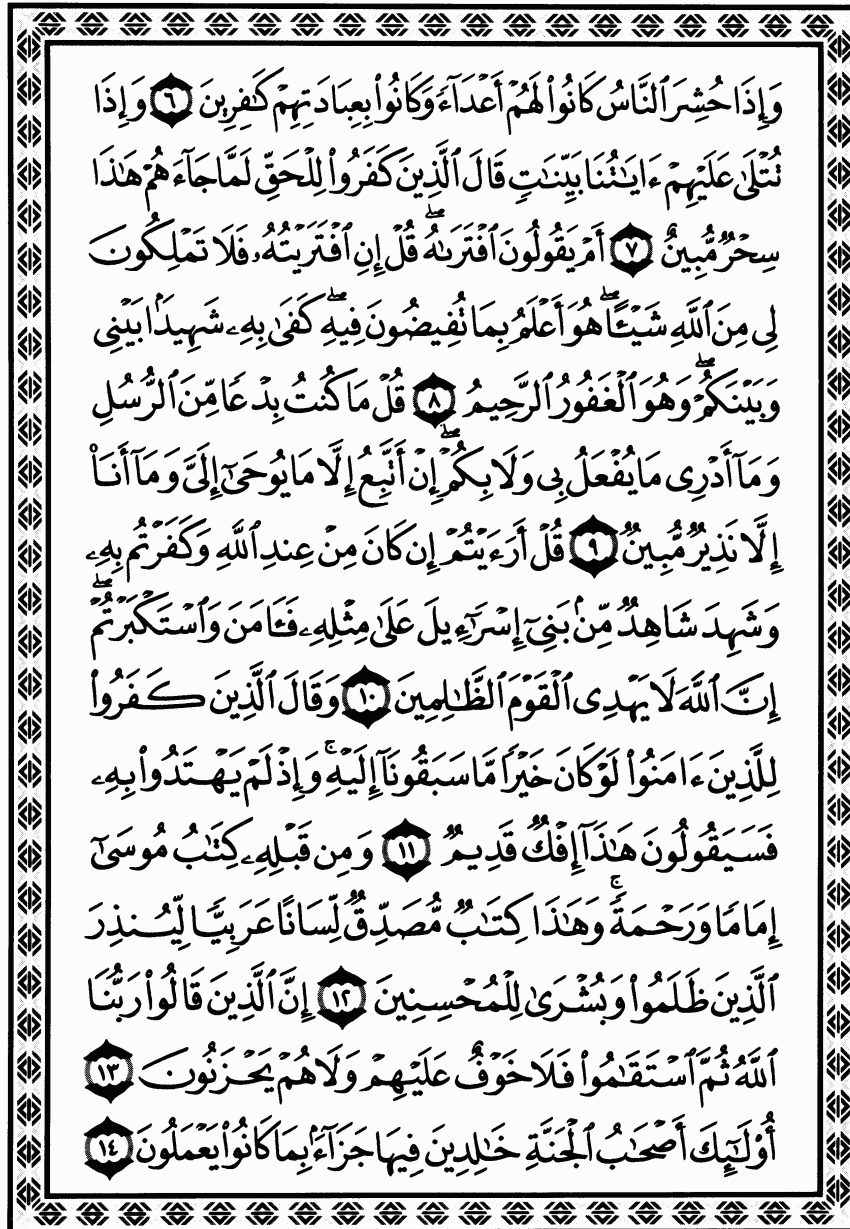 وَإِذَا حُشِرَ ٱلنَّاسُ كَانُوا۟ لَهُمْ أَعْدَآءً وَكَانُوا۟ بِعِبَادَتِهِمْ كَـٰفِرِينَ ٦ وَإِذَا
تُتْلَىٰ عَلَيْهِمْ ءَايَـٰتُنَا بَيِّنَـٰتٍ قَالَ ٱلَّذِينَ كَفَرُوا۟ لِلْحَقِّ لَمَّا جَآءَهُمْ هَـٰذَا
سِحْرٌ مُّبِينٌ ٧ أَمْ يَقُولُونَ ٱفْتَرَىٰهُ ۖ قُلْ إِنِ ٱفْتَرَيْتُهُۥ فَلَا تَمْلِكُونَ
لِى مِنَ ٱللَّهِ شَيْـًٔا ۖ هُوَ أَعْلَمُ بِمَا تُفِيضُونَ فِيهِ ۖ كَفَىٰ بِهِۦ شَهِيدًۢا بَيْنِى
وَبَيْنَكُمْ ۖ وَهُوَ ٱلْغَفُورُ ٱلرَّحِيمُ ٨ قُلْ مَا كُنتُ بِدْعًا مِّنَ ٱلرُّسُلِ
وَمَآ أَدْرِى مَا يُفْعَلُ بِى وَلَا بِكُمْ ۖ إِنْ أَتَّبِعُ إِلَّا مَا يُوحَىٰٓ إِلَىَّ وَمَآ أَنَا۠
إِلَّا نَذِيرٌ مُّبِينٌ ٩ قُلْ أَرَءَيْتُمْ إِن كَانَ مِنْ عِندِ ٱللَّهِ وَكَفَرْتُم بِهِۦ
وَشَهِدَ شَاهِدٌ مِّنۢ بَنِىٓ إِسْرَٰٓءِيلَ عَلَىٰ مِثْلِهِۦ فَـَٔامَنَ وَٱسْتَكْبَرْتُمْ ۖ
إِنَّ ٱللَّهَ لَا يَهْدِى ٱلْقَوْمَ ٱلظَّـٰلِمِينَ ١٠ وَقَالَ ٱلَّذِينَ كَفَرُوا۟
لِلَّذِينَ ءَامَنُوا۟ لَوْ كَانَ خَيْرًا مَّا سَبَقُونَآ إِلَيْهِ ۚ وَإِذْ لَمْ يَهْتَدُوا۟ بِهِۦ
فَسَيَقُولُونَ هَـٰذَآ إِفْكٌ قَدِيمٌ ١١ وَمِن قَبْلِهِۦ كِتَـٰبُ مُوسَىٰٓ
إِمَامًا وَرَحْمَةً ۚ وَهَـٰذَا كِتَـٰبٌ مُّصَدِّقٌ لِّسَانًا عَرَبِيًّا لِّيُنذِرَ
ٱلَّذِينَ ظَلَمُوا۟ وَبُشْرَىٰ لِلْمُحْسِنِينَ ١٢ إِنَّ ٱلَّذِينَ قَالُوا۟ رَبُّنَا
ٱللَّهُ ثُمَّ ٱسْتَقَـٰمُوا۟ فَلَا خَوْفٌ عَلَيْهِمْ وَلَا هُمْ يَحْزَنُونَ ١٣
أُو۟لَـٰٓئِكَ أَصْحَـٰبُ ٱلْجَنَّةِ خَـٰلِدِينَ فِيهَا جَزَآءًۢ بِمَا كَانُوا۟ يَعْمَلُونَ ١٤